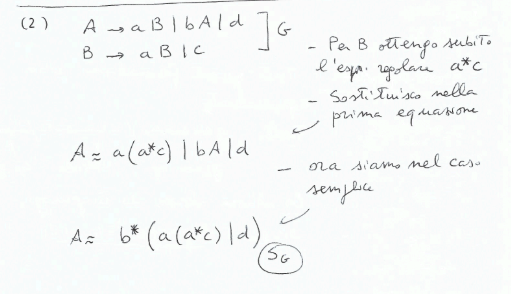 (2) A → aB | bA | d
B → aB | c ] G
- Per B ottengo subito
l'espr. regolare a*c
- Sostituisco nella
prima equazione
A ≈ a(a*c) | bA | d
- ora siamo nel caso
semplice
A ≈ b* (a(a*c) | d)
SG